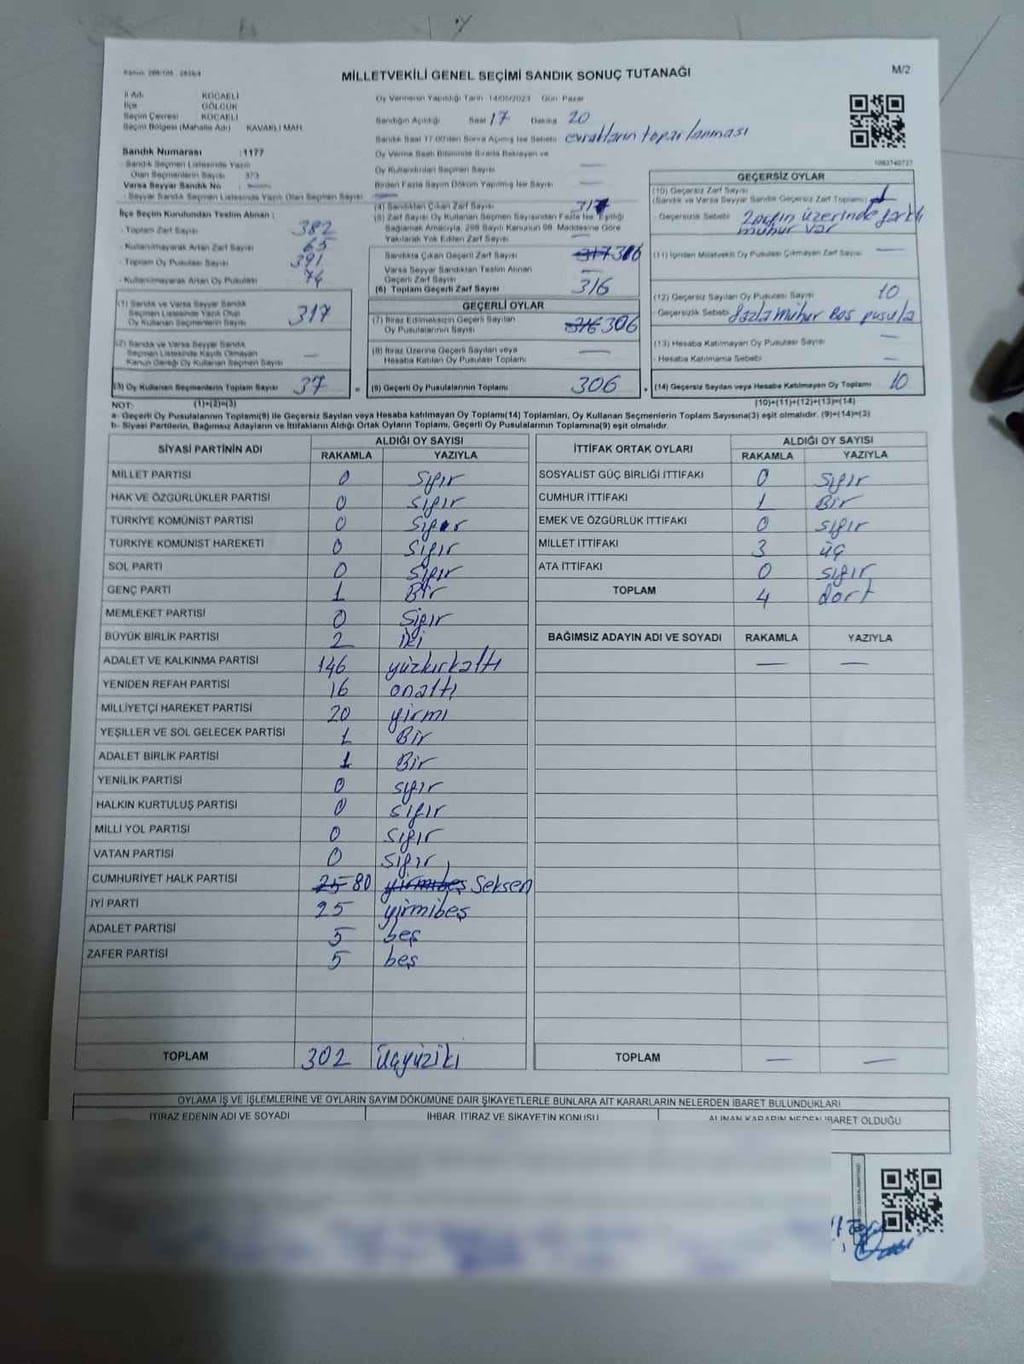 MİLLETVEKİLİ GENEL SEÇİMİ SANDIK SONUÇ TUTANAĞI
M/2
İl Adı KOCAELİ
İlçe GÖLCÜK
Seçim Çevresi KOCAELİ
Seçim Bölgesi (Mahalle Adı) KAVAKLI MAH.
Oy Vermenin Yapıldığı Tarih 14/05/2023 Gün Pazar
Sandığın Açıldığı Saat 17 Dakika 20
evrakların toparlanması
Sandık Numarası :1177
Sandık Seçmen Listesinde Yazılı
Olan Seçmenlerin Sayısı 373
Varsa Seyyar Sandık No
Seyyar Sandık Listesinde Yazılı Olan Seçmen Sayısı
İlçe Seçim Kurulundan Teslim Alınan :
- Toplam Zarf Sayısı 382
- Kullanılmayarak Artan Zarf Sayısı 65
- Toplam Oy Pusulası Sayısı 391
- Kullanılmayarak Artan Oy Pusulası 74
(1) Sandık ve Varsa Seyyar Sandık
Seçmen Listesinde Yazılı Olup
Oy Kullanan Seçmenlerin Sayısı 317
(2) Sandık ve Varsa Seyyar Sandık
Seçmen Listesinde Kayıtlı Olmayan
Kanun Gereği Oy Kullanan Seçmen Sayısı —
(3) Oy Kullanan Seçmenlerin Toplam Sayısı 37
(1)+(2)=(3)
Oy Verme Saati Bitiminde Sırada Bekleyen ve
Oy Kullandırılan Seçmen Sayısı —
Birden Fazla Sayım Döküm Yapılmış İse Sayısı —
(4) Sandıktan Çıkan Zarf Sayısı 317
(5) Zarf Sayısı Oy Kullanan Seçmen Sayısından Fazla İse, Eşitliği
Sağlamak Amacıyla, 298 Sayılı Kanunun 98. Maddesine Göre
Yakılarak Yok Edilen Zarf Sayısı
Sandıkta Çıkan Geçerli Zarf Sayısı 317 316
Varsa Seyyar Sandıktan Teslim Alınan
Geçerli Zarf Sayısı —
(6) Toplam Geçerli Zarf Sayısı 316
GEÇERLİ OYLAR
(7) İtiraz Edilmeksizin Geçerli Sayılan
Oy Pusulalarının Sayısı 316 306
(8) İtiraz Üzerine Geçerli Sayılan veya
Hesaba Katılan Oy Pusulası Toplamı —
(9) Geçerli Oy Pusulalarının Toplamı 306
GEÇERSİZ OYLAR
(10) Geçersiz Zarf Sayısı
(Sandık ve Varsa Seyyar Sandık Geçersiz Zarf Toplamı) 1
- Geçersizlik Sebebi Zarfın üzerinde farklı
mühür var
(11) İçinden Milletvekili Oy Pusulası Çıkmayan Zarf Sayısı —
(12) Geçersiz Sayılan Oy Pusulası Sayısı 10
- Geçersizlik Sebebi fazla mühür Boş pusula
(13) Hesaba Katılmayan Oy Pusulası Sayısı —
- Hesaba Katılmama Sebebi —
(14) Geçersiz Sayılan veya Hesaba Katılmayan Oy Toplamı 10
(10)+(11)+(12)+(13)=(14)
NOT:
a- Geçerli Oy Pusulalarının Toplamı(9) ile Geçersiz Sayılan veya Hesaba katılmayan Oy Toplamı(14) Toplamları, Oy Kullanan Seçmenlerin Toplam Sayısına(3) eşit olmalıdır. (9)+(14)=(3)
b- Siyasi Partilerin, Bağımsız Adayların ve İttifakların Aldığı Ortak Oyların Toplamı, Geçerli Oy Pusulalarının Toplamına(9) eşit olmalıdır.
SİYASİ PARTİNİN ADI ALDIĞI OY SAYISI
RAKAMLA YAZIYLA
MİLLET PARTİSİ 0 sıfır
HAK VE ÖZGÜRLÜKLER PARTİSİ 0 sıfır
TÜRKİYE KOMÜNİST PARTİSİ 0 sıfır
TÜRKİYE KOMÜNİST HAREKETİ 0 sıfır
SOL PARTİ 0 sıfır
GENÇ PARTİ 1 Bir
MEMLEKET PARTİSİ 0 sıfır
BÜYÜK BİRLİK PARTİSİ 2 iki
ADALET VE KALKINMA PARTİSİ 146 yüzkırkaltı
YENİDEN REFAH PARTİSİ 16 onaltı
MİLLİYETÇİ HAREKET PARTİSİ 20 yirmi
YEŞİLLER VE SOL GELECEK PARTİSİ 1 Bir
ADALET BİRLİK PARTİSİ 1 Bir
YENİLİK PARTİSİ 0 sıfır
HALKIN KURTULUŞ PARTİSİ 0 sıfır
MİLLİ YOL PARTİSİ 0 sıfır
VATAN PARTİSİ 0 sıfır
CUMHURİYET HALK PARTİSİ 25 80 yirmibeş Seksen
İYİ PARTİ 25 yirmibeş
ADALET PARTİSİ 5 beş
ZAFER PARTİSİ 5 beş
TOPLAM 302 üçyüziki
İTTİFAK ORTAK OYLARI ALDIĞI OY SAYISI
RAKAMLA YAZIYLA
SOSYALİST GÜÇ BİRLİĞİ İTTİFAKI 0 sıfır
CUMHUR İTTİFAKI 1 Bir
EMEK VE ÖZGÜRLÜK İTTİFAKI 0 sıfır
MİLLET İTTİFAKI 3 üç
ATA İTTİFAKI 0 sıfır
TOPLAM 4 dört
BAĞIMSIZ ADAYIN ADI VE SOYADI RAKAMLA YAZIYLA
— —
TOPLAM — —
OYLAMA İŞ VE İŞLEMLERİNE VE OYLARIN SAYIM DÖKÜMÜNE DAİR ŞİKAYETLERLE BUNLARA AİT KARARLARIN NELERDEN İBARET BULUNDUKLARI
İTİRAZ EDENİN ADI VE SOYADI İHBAR, İTİRAZ VE ŞİKAYETİN KONUSU ALINAN KARARIN NEDEN İBARET OLDUĞU